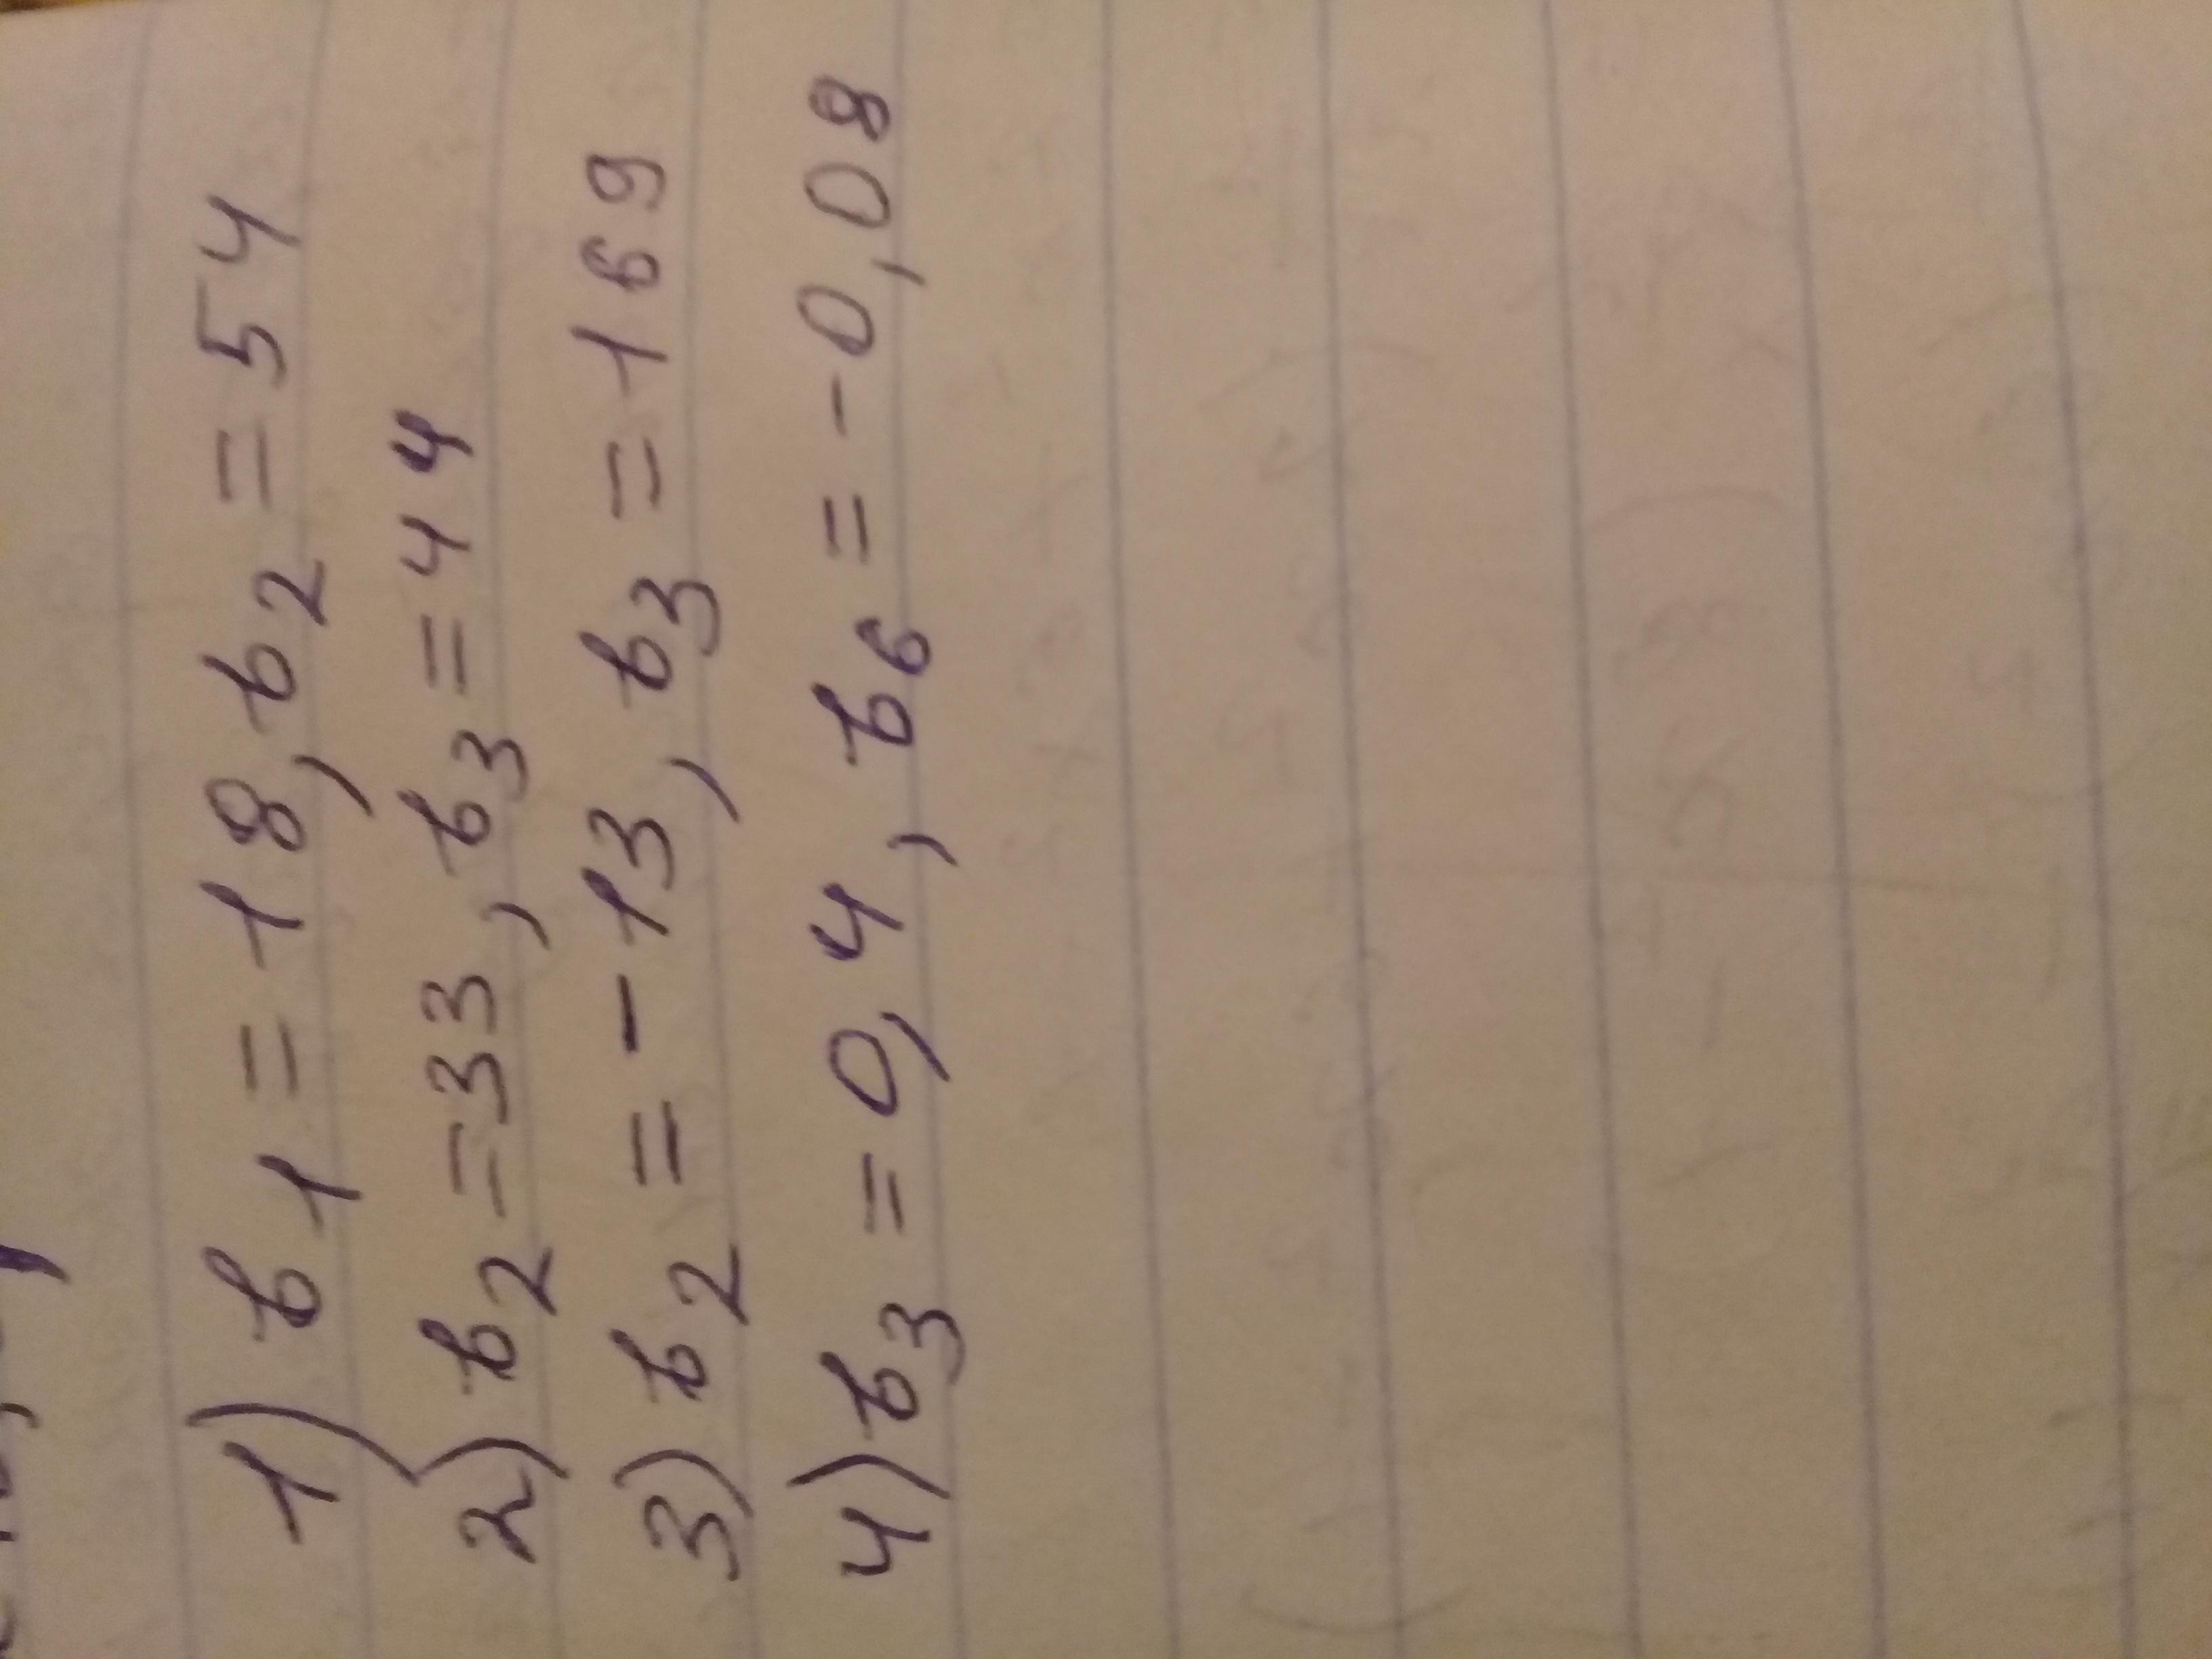 1) b1 = 18, b2 = 54
2) b2 = 33, b3 = 44
3) b2 = -13, b3 = 169
4) b3 = 0,4, b6 = -0,08